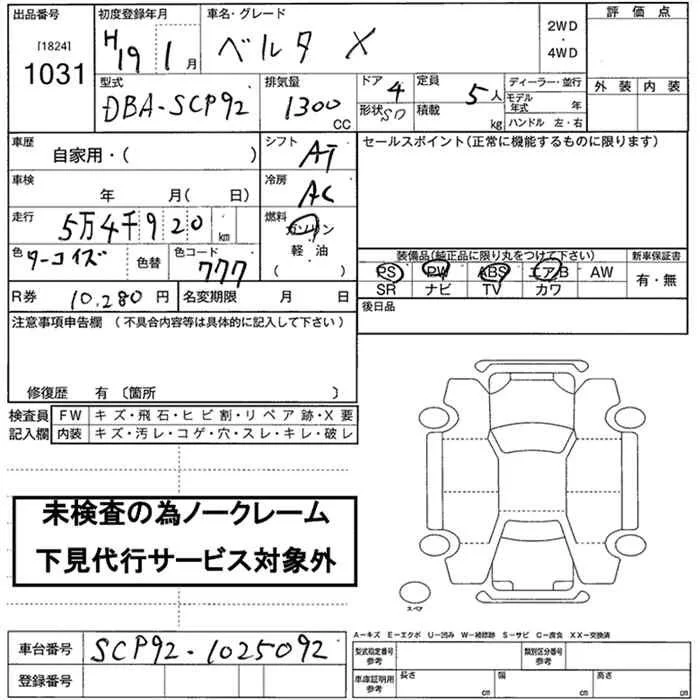 出品番号
[1824]
1031
初度登録年月
H19 1月
車名・グレード
ベルタ X
2WD
・
4WD
評価点
外装 内装
型式
DBA-SCP92
排気量
1300
CC
ドア
4
形状
SD
定員
5人
積載
kg
ディーラー・並行
モデル年式 年
ハンドル 左・右
車歴
自家用・( )
シフト
AT
セールスポイント(正常に機能するものに限ります)
車検
年 月( 日)
冷房
AC
走行
5万4千920 km
燃料
ガソリン
軽油
( )
色
ターコイズ
色替
色コード
777
装備品(純正品に限り丸をつけて下さい)
PS PW ABS エアB AW
SR ナビ TV カワ
新車保証書
有・無
R券 10,280円
名変期限 月 日
後日品
注意事項申告欄 (不具合内容等は具体的に記入して下さい)
修復歴 有 〔箇所 〕
検査員記入欄
FW キズ・飛石・ヒビ割・リペア跡・X要
内装 キズ・汚レ・コゲ・穴・スレ・キレ・破レ
未検査の為ノークレーム
下見代行サービス対象外
スペア
A-キズ E-エクボ U-凹み W-補修跡 S-サビ C-腐食 XX-交換済
車台番号 SCP92-1025092
登録番号
型式指定番号
参考
類別区分番号
参考
車庫証明用
参考
長さ cm
幅 cm
高さ cm